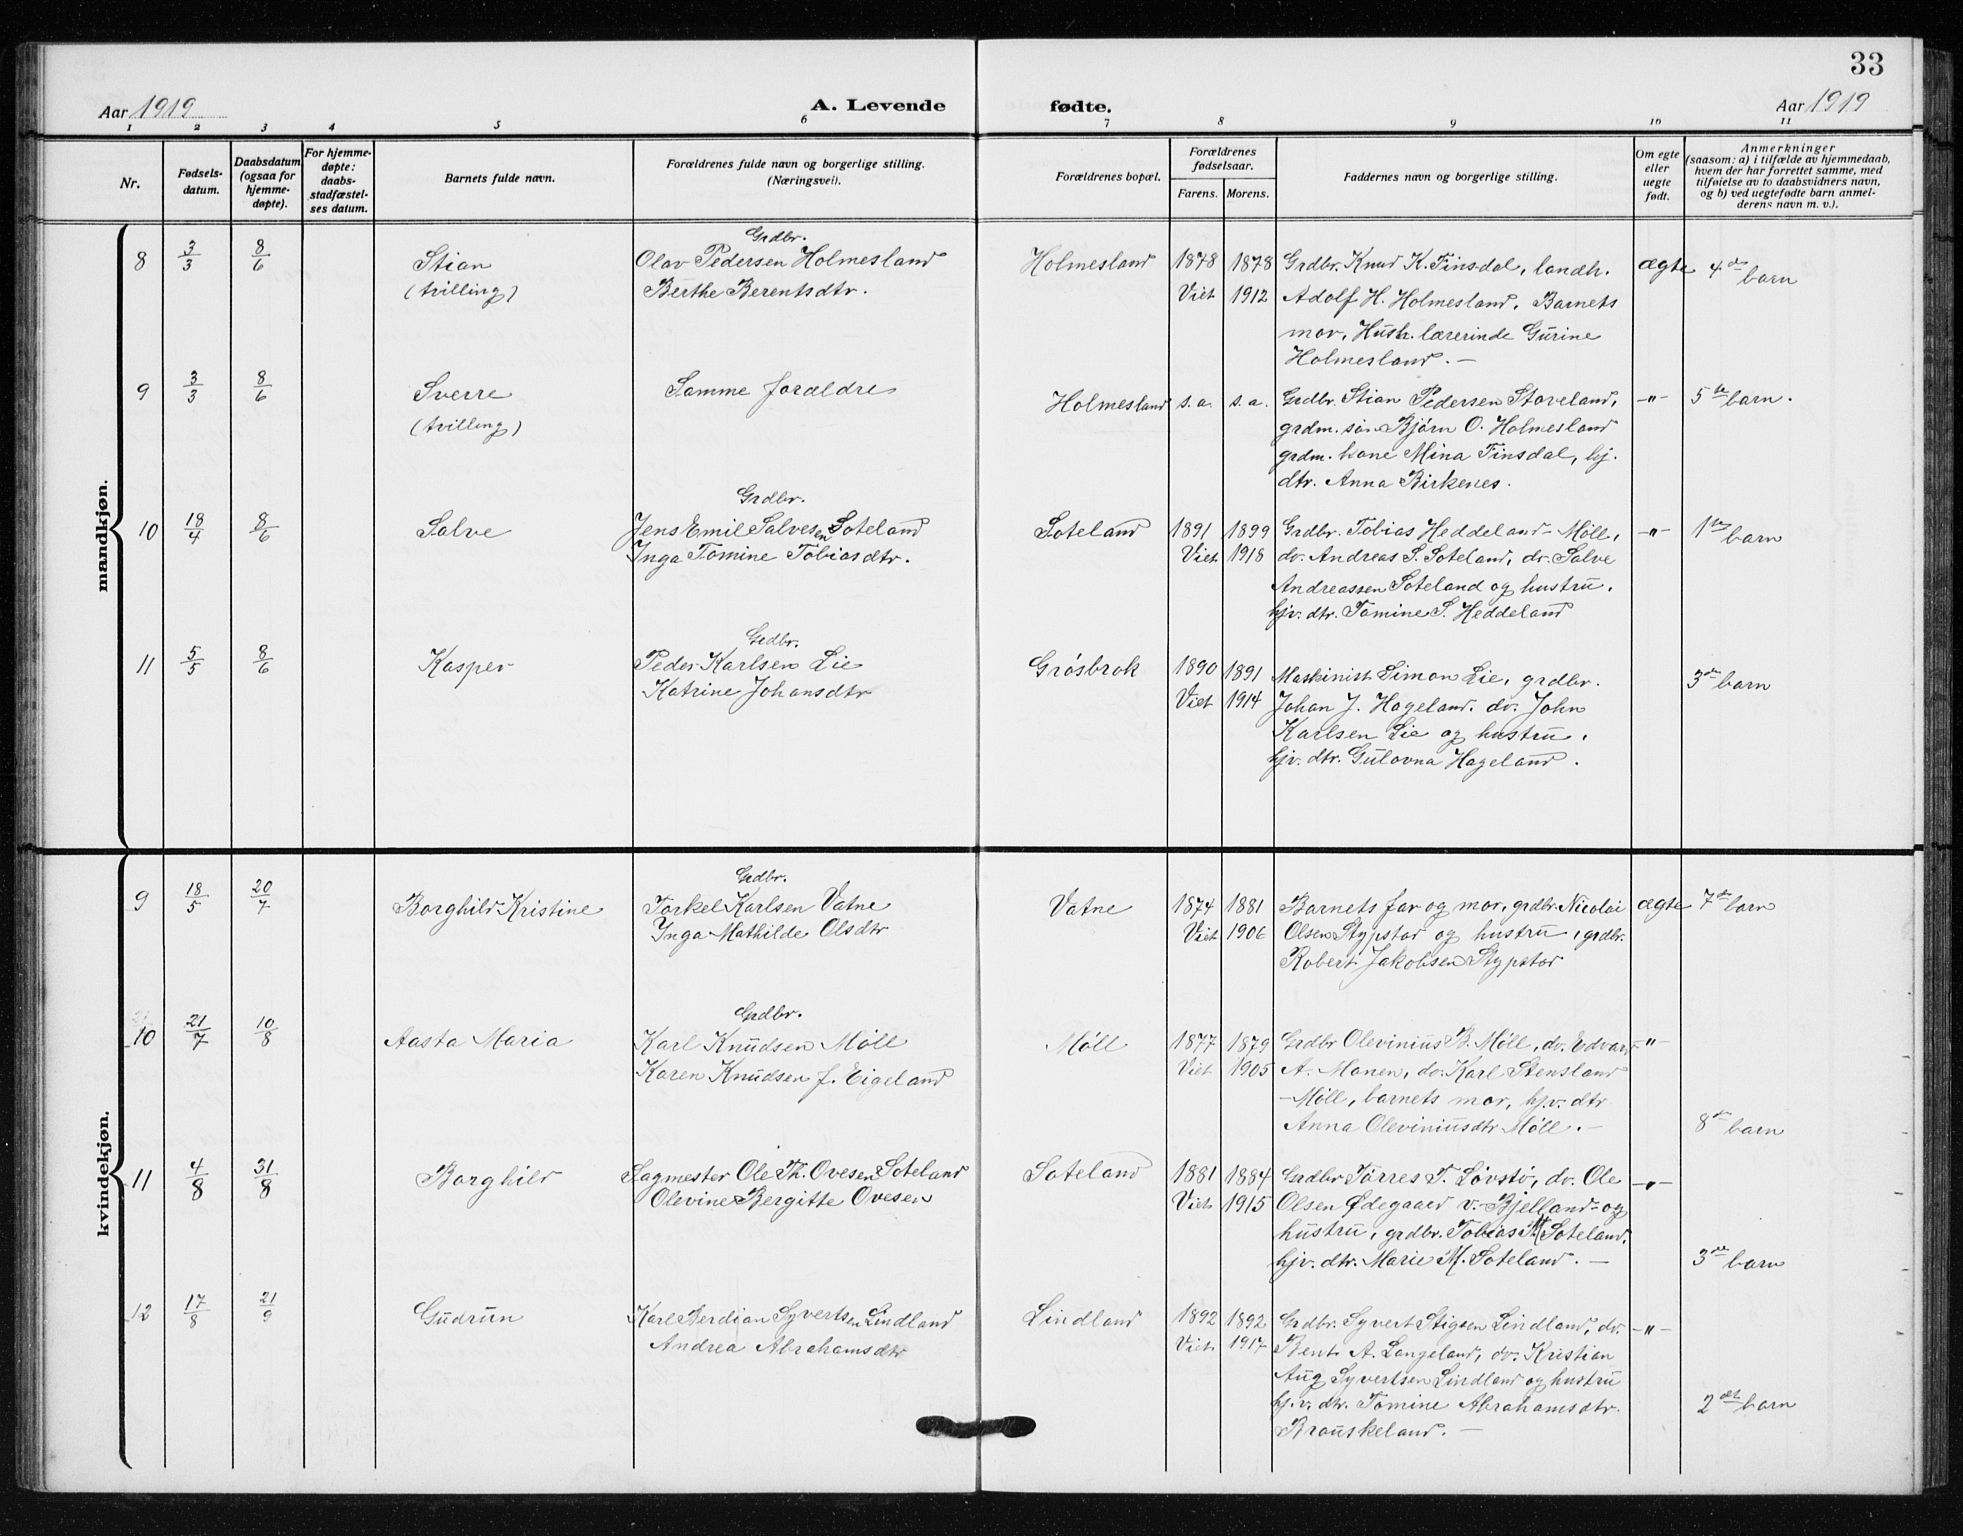 33
Aar 1919 A. Levende fødte. Aar 1919
1 2 3 4 5 6 7 8 9 10 11
Nr.
Fødsels-
datum.
Daabsdatum
(ogsaa for
hjemme-
døpte).
For hjemme-
døpte:
daabs-
stadfæstel-
ses datum.
Barnets fulde navn.
Forældrenes fulde navn og borgerlige stilling.
(Næringsvei).
Forældrenes bopæl.
Forældrenes
fødselsaar.
Farens. Morens.
Faddernes navn og borgerlige stilling.
Om egte
eller
uegte
født.
Anmerkninger
(saasom: a) i tilfælde av hjemmedaab,
hvem der har forrettet samme, med
tilføielse av to daabsvidners navn,
og b) ved uegtefødte barn anmel-
derens navn m. v.).
mandkjøn.
8 3/3 8/6 Stian
(tvilling)
Grdbr.
Olav Pedersen Holmesland
Berthe Berentsdtr.
Holmesland
1878 1878
Viet 1912
Grdbr. Knud K. Finsdal, landh.
Adolf H. Holmesland, Barnets
mor, Hush. lærerinde Gurine
Holmesland. —
ægte
4de barn
9 3/3 8/6 Sverre
(tvilling)
Samme forældre
Holmesland s.a. s.a.
Grdbr. Stian Pedersen Stoveland,
grdm. søn Bjørn O. Holmesland
grdm. kone Mina Finsdal, hj.
dtr. Anna Birkenes.
-"-
5te barn.
10 18/4 8/6 Salve
Grdbr.
Jens Emil Salvesen Soteland
Inga Tomine Tobiasdtr.
Soteland
1891 1899
Viet 1918
Grdbr. Tobias Heddeland-Møll,
do. Andreas S. Soteland, do. Salve
Andreassen Soteland og hustru,
hjv. dtr. Tomine S. Heddeland
-"-
1ste barn
11 5/5 8/6 Kasper
Grdbr.
Peder Karlsen Lie
Katrine Johansdtr
Grøsbrok
1890 1891
Viet 1914
Maskinist Simon Lie, grdbr.
Johan J. Hageland. do. John
Karlsen Lie og hustru,
hjv. dtr. Gulovna Hageland.
3die barn
kvindekjøn.
9 18/5 20/7 Borghild Kristine
Grdbr.
Torkel Karlsen Vatne
Inga Mathilde Olsdtr
Vatne
1874 1881
Viet 1906
Barnets far og mor, grdbr. Nicolai
Olsen Stypstad og hustru, grdbr.
Robert Jakobsen Stypstad
ægte
7de barn
10 21/7 10/8 Aasta Maria
Grdbr.
Karl Knudsen Møll
Karen Knudsen f. Eigeland
Møll
1877 1879
Viet 1905
Grdbr Olevinius B. Møll, do. Edvard
A. Monen, do. Karl Stensland
-Møll, barnets mor, hj.v. dtr
Anna Oleviniusdtr Møll. —
"-
8de barn
11 4/8 31/8 Borghild
Sagmester Ole Th. Ovesen Soteland
Olevine Bergitte Ovesen
Soteland
1881 1884
Viet 1915
Grdbr Tørres T. Løvstø, do. Ole
Olsen Ødegaard v. Bjelland og
hustru, grdbr. Tobias M Soteland.
hjv. dtr. Marie M. Soteland. —
-"-
3die barn
12 17/8 21/9 Gudrun
Karl Berdian Syvertsen Lindland
Andrea Abrahamsdtr
Lindland
1892 1892
Viet 1917
Grdbr. Syvert Stigsen Lindland, do.
Bent A. Langeland, do. Kristian
Aug Syvertsen Lindland og hustru
hj.v. dtr. Tomine Abrahamsdtr.
Brouskeland. —
-"-
2det barn